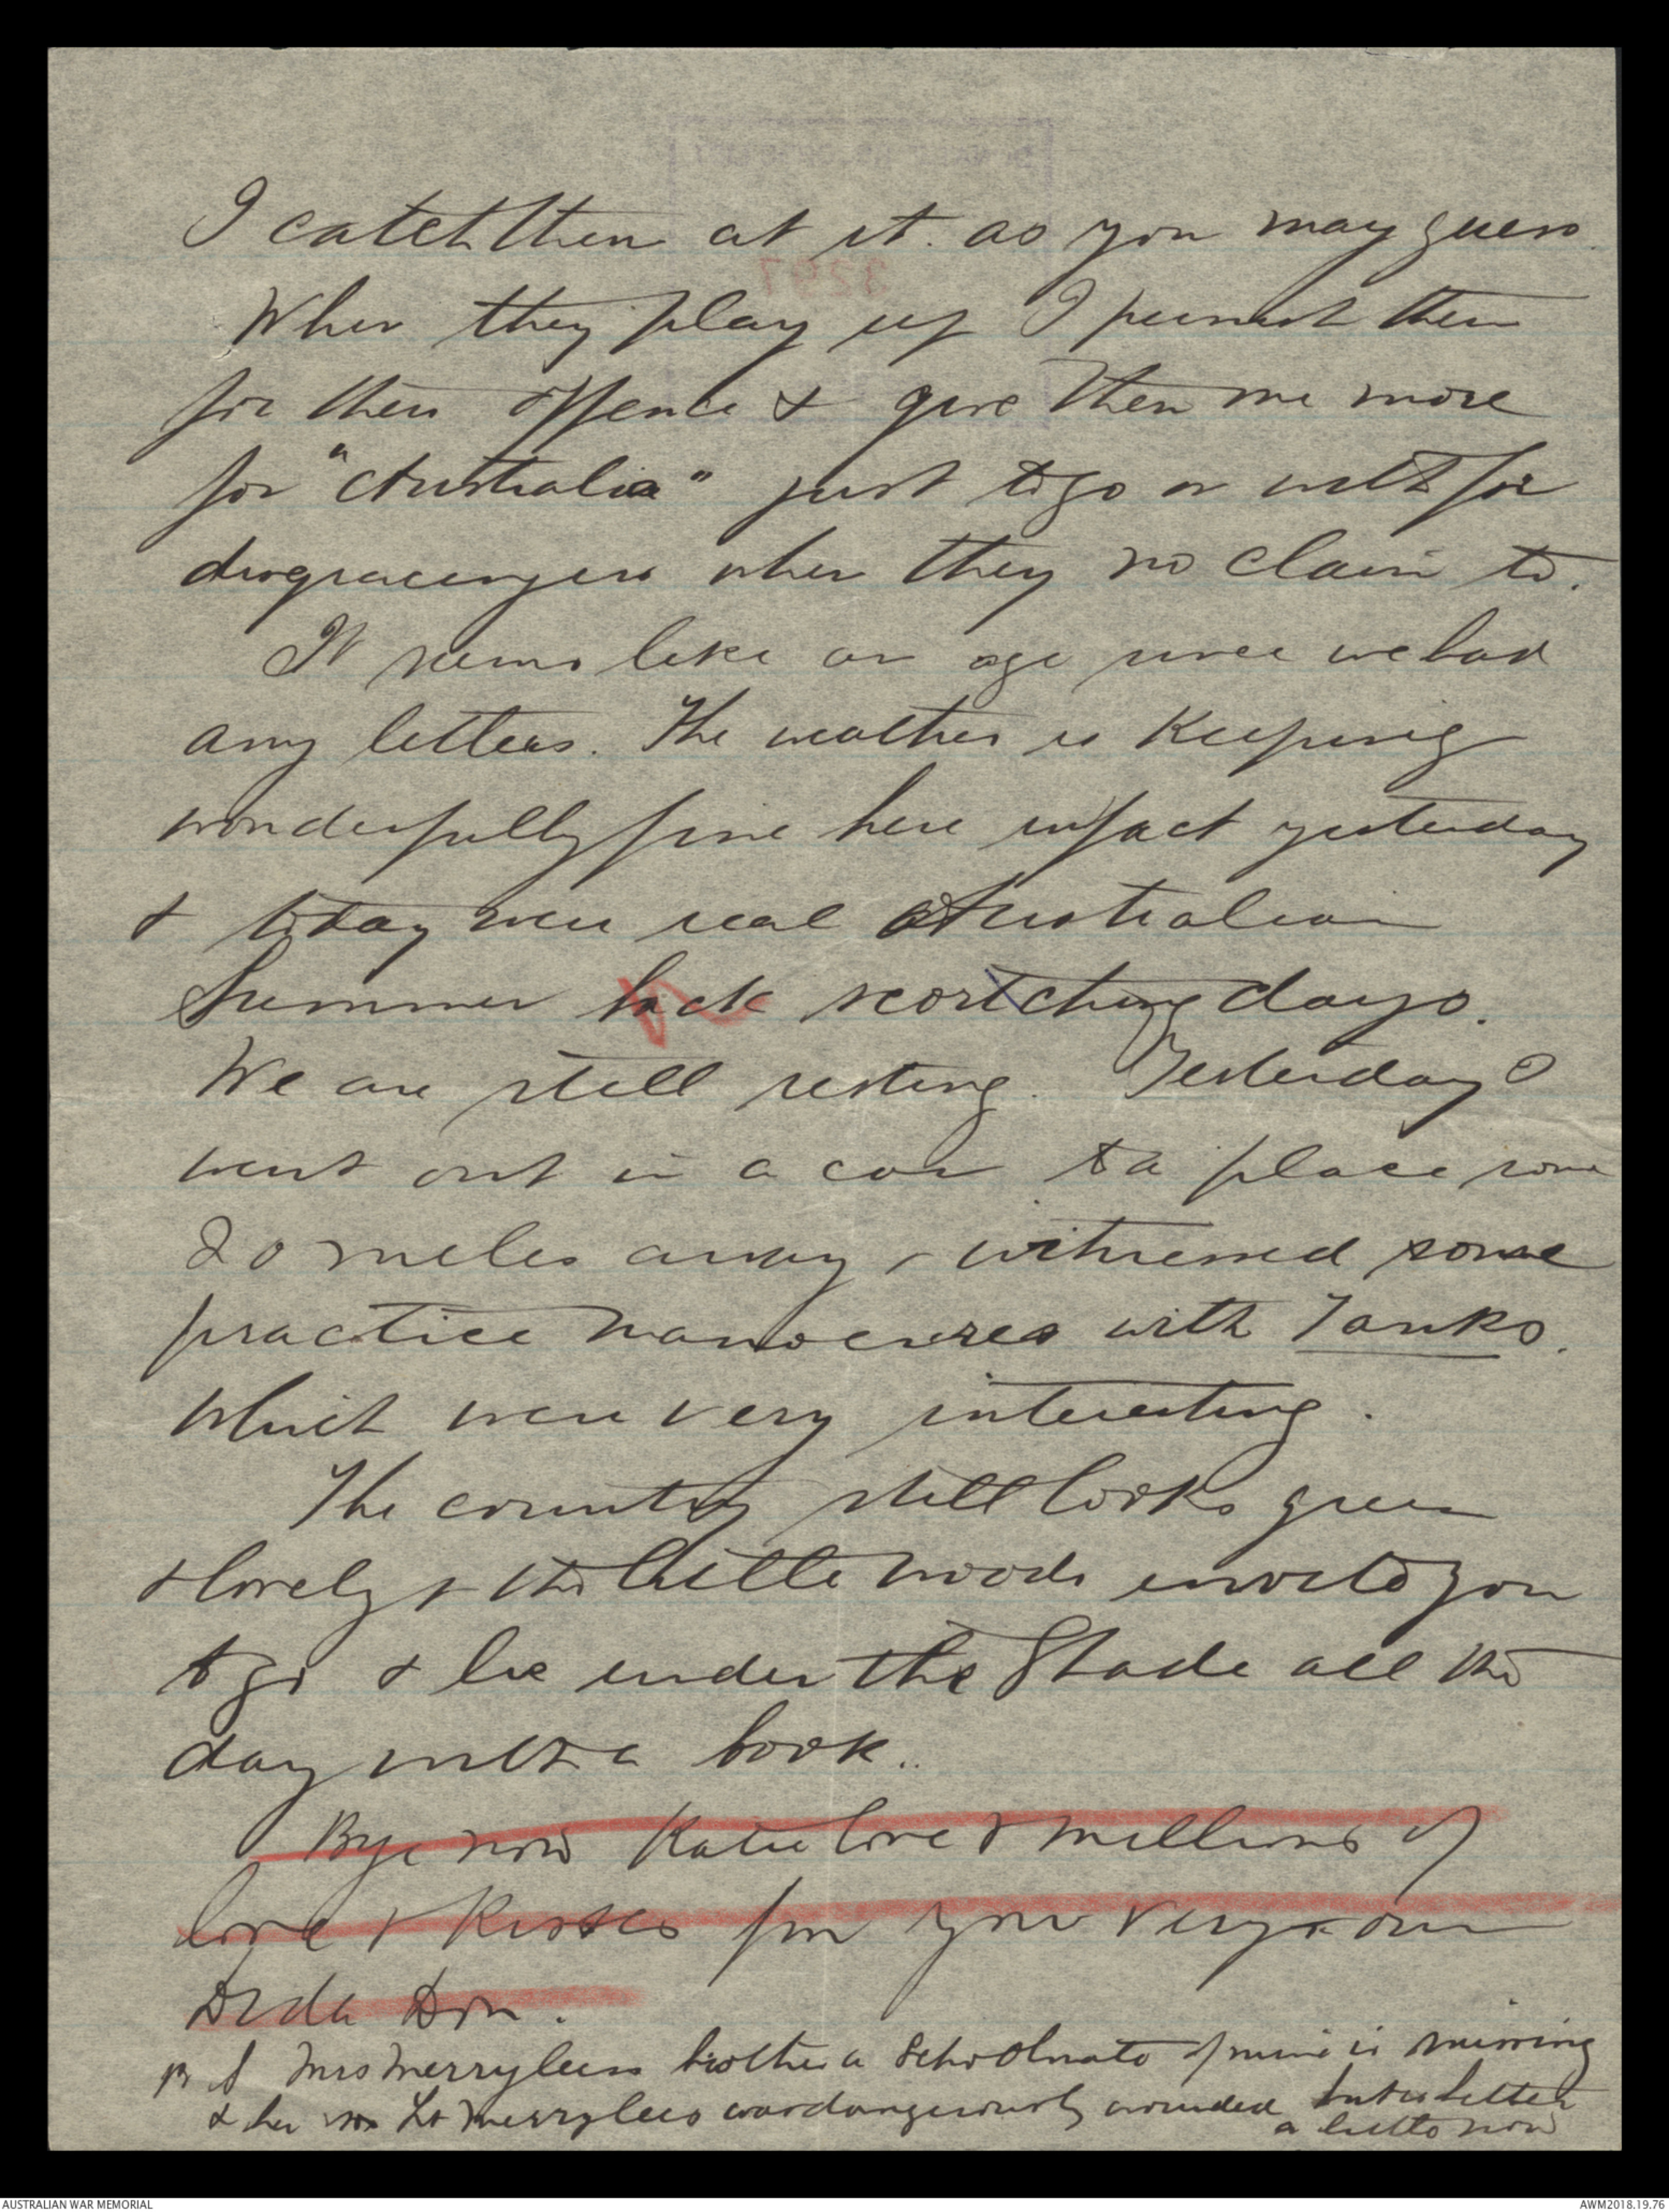 I catch them at it. as you may guess.
When they play up I punish them
for their offence & give them one more
for "Australia" just to go on with for
disgracing us when they no claim to.
It seems like an age since we had
any letters. The weather is keeping
wonderfully fine here infact yesterday
& today were real Australian
Summer scortching days.
We are still resting. Yesterday I
went out in a car to a place some
20 miles away & witnessed some
practice manoeuvres with Tanks.
which were very interesting.
The country still looks green
& lovely & the little woods invite you
to go & lie under the Shade all the
day with a book..
Bye now Katie love & millions of
love & kisses from your very own
Dida Don.
P S Mrs Merrylees brother a Schoolmate of mine is missing
& her son Lt Merrylees was dangerously wounded but is better
a little now
3297
AUSTRALIAN WAR MEMORIAL
AWM2018.19.76